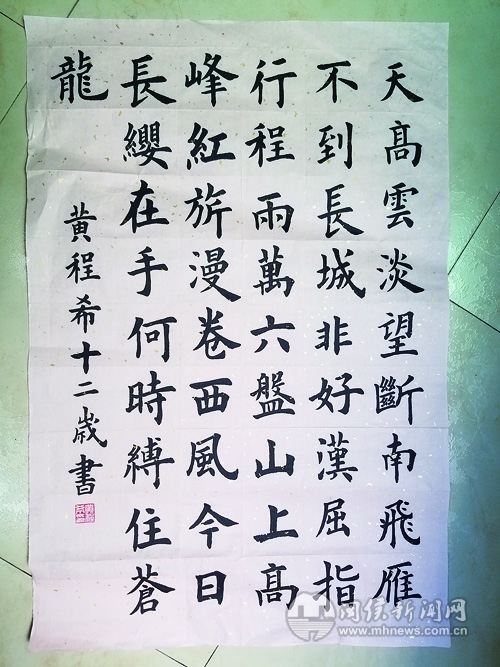 天髙雲淡望斷南飛雁
不到長城非好漢屈指
行程兩萬六盤山上髙
峰紅旂漫卷西風今日
長纓在手何時縛住蒼
龍
黄程希十二歲書
闽侯新闻网
www.mhnews.com.cn